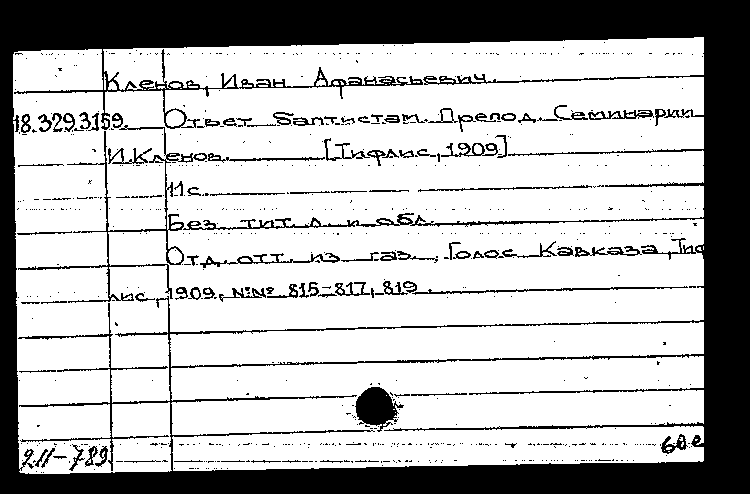 Кленов, Иван Афанасьевич.
18.329.3159. Ответ баптистам. Препод. Семинарии
И.Кленов. [Тифлис, 1909]
11с.
Без тит. л. и обл.
Отд. отт. из газ. "Голос Кавказа, Тиф
лис, 1909, №№ 815-817, 819.
211-789